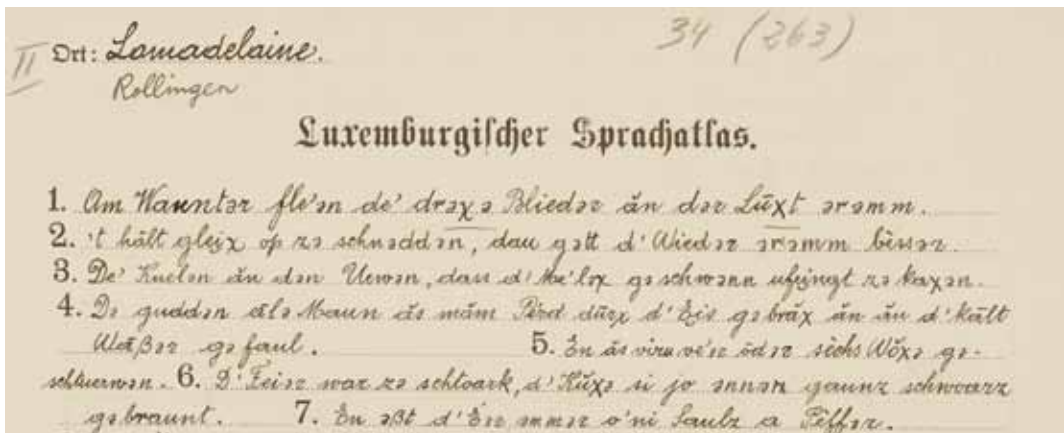 34 (263)
II Ort: Lamadelaine.
Rollingen
Luxemburgischer Sprachatlas.
1. Am Wauntər fle'ən de' drəxə Bliedər ăn dər Lūxt ərəmm.
2. 't hält gleix op zə schnəddən, dau gətt d'Wiedər ərəmm bèssər.
3. De' Kuelən ăn dən Uewən, dass d' Me'ləx gəschwənn ufeingt zə kaxən.
4. Də guddən ālə Maun ās mām Pērd dūrx d'Eis gəbrāx ăn ăn d'kālt
Wāßər gəfaul. 5. En ās viru ve'er ōdər sichs Wōxə gə-
schtuerwən. 6. D'Feiər war zə schtoark, d'Kūxə si jo ənnən gaunz schwoarz
gəbraunt. 7. En əßt d'Eər əmmər o'ni Saulz a Pēffər.